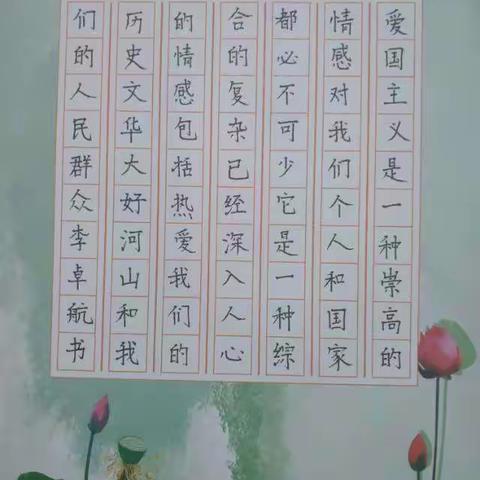 爱国主义是一种崇高的
情感对我们个人和国家
都必不可少它是一种综
合的复杂已经深入人心
的情感包括热爱我们的
历史文华大好河山和我
们的人民群众李卓航书